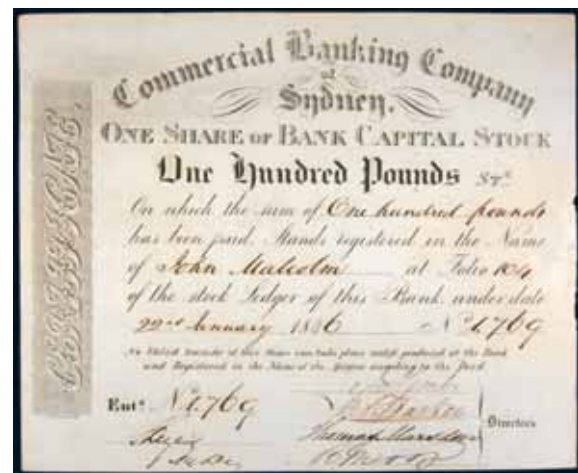 Commercial Banking Company
of
Sydney.
ONE SHARE OF BANK CAPITAL STOCK
One Hundred Pounds STG
On which the sum of One hundred pounds
has been paid. Stands registered in the Name
of John Malcolm at Folio 104
of the stock Ledger of this Bank under date
22nd January 1836 No 1,769
and Registered in the Name of the
Entd. No 1,769
Thomas
Directors
CERTIFICATE.